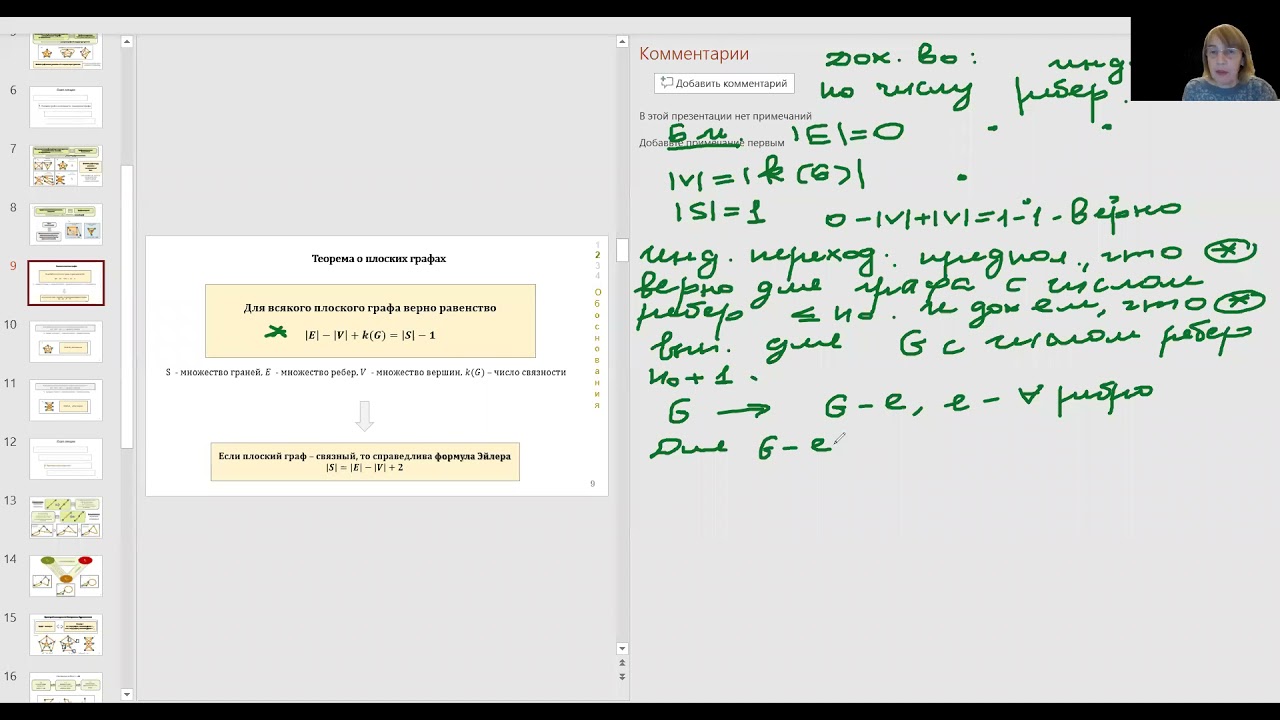 6
7
8
9
10
11
12
13
14
15
16
Теорема о плоских графах
Для всякого плоского графа верно равенство
* |E| − |V| + k(G) = |S| − 1
S - множество граней, E - множество ребер, V - множество вершин, k(G) – число связности
Если плоский граф – связный, то справедлива формула Эйлера
|S| = |E| − |V| + 2
9
1
2
3
4
Обоснования
Комментарии
Добавить комментарий
В этой презентации нет примечаний
Добавьте примечание первым
Док. во: инд.
по числу ребер.
Б.и. |E|=0
|V|=|k(G)|
|S|=1 0-|V|+|V|=1-1 - верно
Инд. переход: предпол., что *
верно для графа с числом
ребер ≤ n₀. И док ем, что *
вып. для G с числом ребер
n₀+1.
G → G-e, e - ∀ ребро
Для G-e